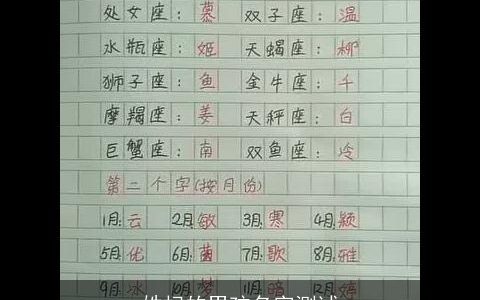 处女座：慕 双子座：温
水瓶座：姬 天蝎座：柳
狮子座：鱼 金牛座：千
摩羯座：姜 天秤座：白
巨蟹座：南 双鱼座：冷
第二个字(按月份)
1月：云 2月：敏 3月：寒 4月：颖
5月：优 6月：茵 7月：歌 8月：雅
9月：冰 10月：梦 11月：晗 12月：婷